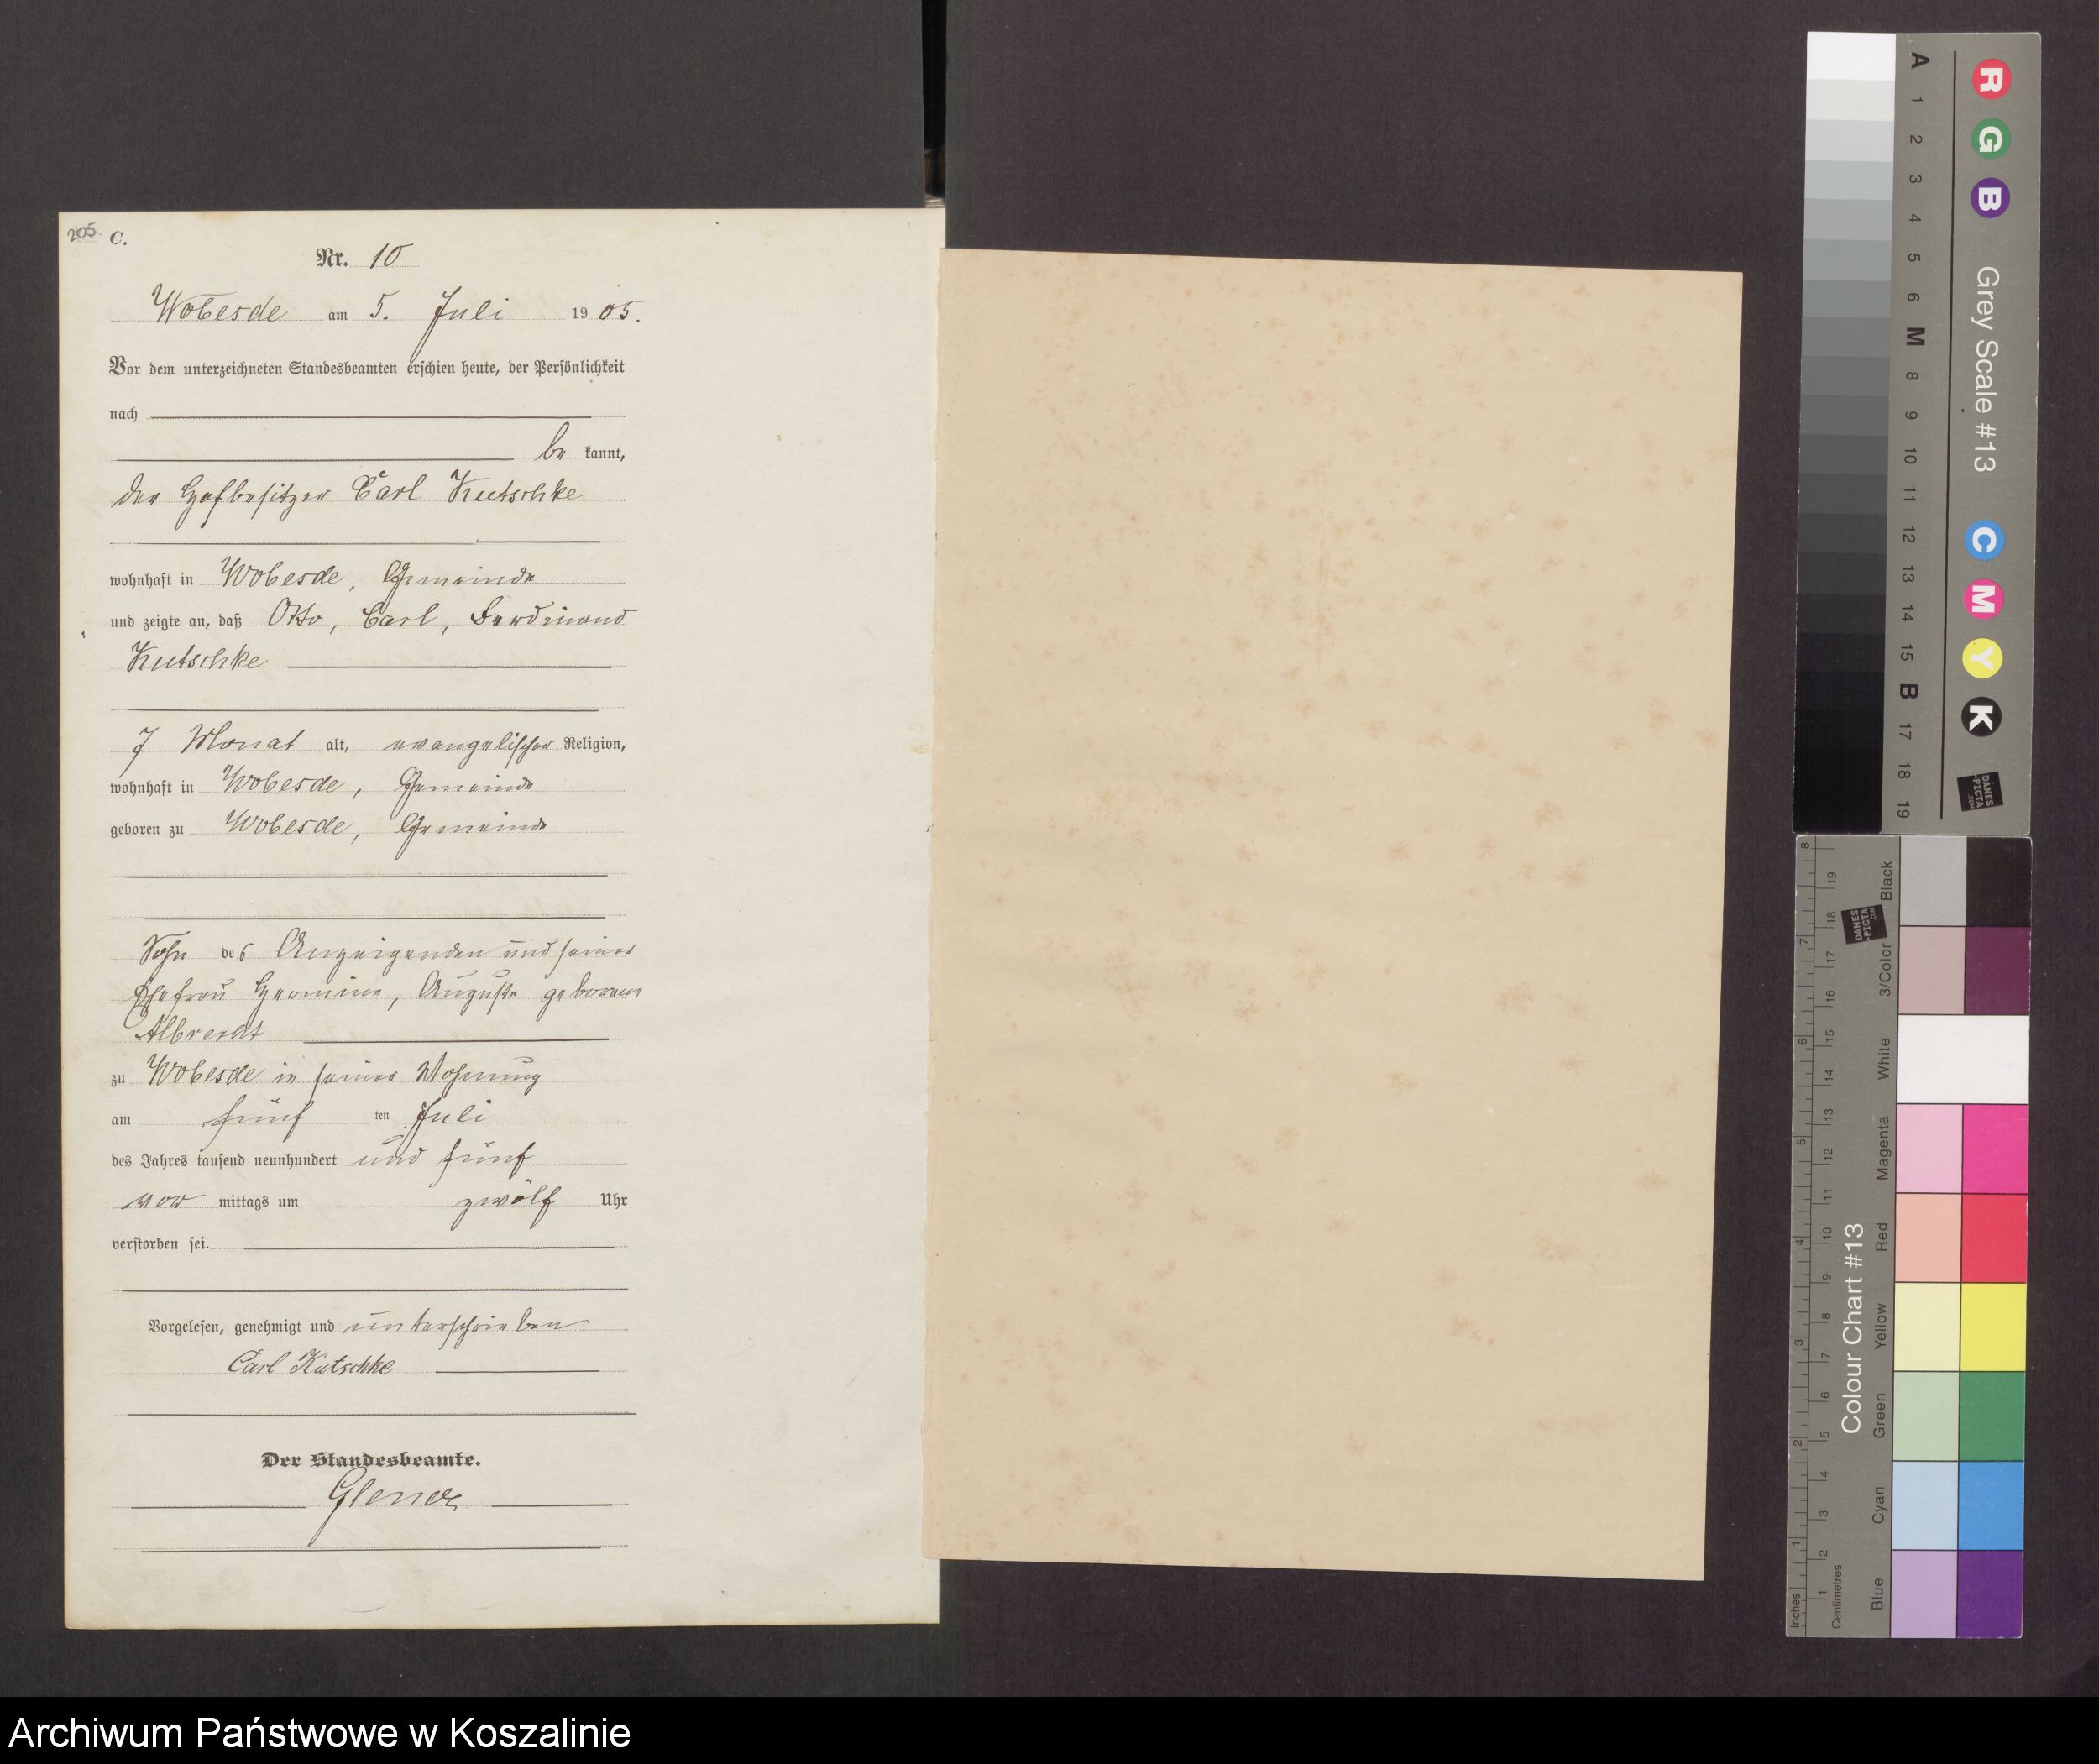 205. C.
Nr. 10
Wobesde am 5. Juli 1905.
Vor dem unterzeichneten Standesbeamten erschien heute, der Persönlichkeit
nach
be kannt,
der Hofbesitzer Carl Kutschke
wohnhaft in Wobesde, Gemeinde
und zeigte an, daß Otto, Carl, Ferdinand
Kutschke
7 Monat alt, evangelischer Religion,
wohnhaft in Wobesde, Gemeinde
geboren zu Wobesde, Gemeinde
Sohn des Anzeigenden und seiner
Ehefrau Hermine, Auguste geborene
Albrecht
zu Wobesde in seiner Wohnung
am fünf ten Juli
des Jahres tausend neunhundert und fünf
vor mittags um zwölf Uhr
verstorben sei.
Vorgelesen, genehmigt und unterschrieben
Carl Kutschke
Der Standesbeamte.
A 1 2 3 4 5 6 M 8 9 10 11 12 13 14 15 B 17 18 19
R G B Grey Scale #13 C M Y K
DANES
-PICTA
.COM
8 7 6 5 4 3 2 1 Inches
19 18 17 16 15 14 13 12 11 10 9 8 7 6 5 4 3 2 1 Centimetres
DANES
-PICTA
.COM
Colour Chart #13
Black
3/Color
White
Magenta
Red
Yellow
Green
Cyan
Blue
Archiwum Państwowe w Koszalinie